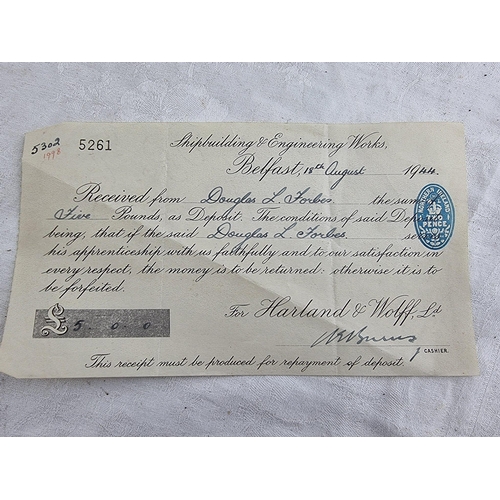 5302
1998
5261
Shipbuilding & Engineering Works,
Belfast, 18th August 1944
Received from Douglas L. Forbes the sum of
Five Pounds, as Deposit. The conditions of said
being, that if the said Douglas L Forbes
his apprenticeship with us faithfully and to our satisfaction in
every respect, the money is to be returned: otherwise it is to
be forfeited.
£ 5 . 0 . 0
For Harland & Wolff, Ld
CASHIER.
This receipt must be produced for repayment of deposit.
TWO
PENCE